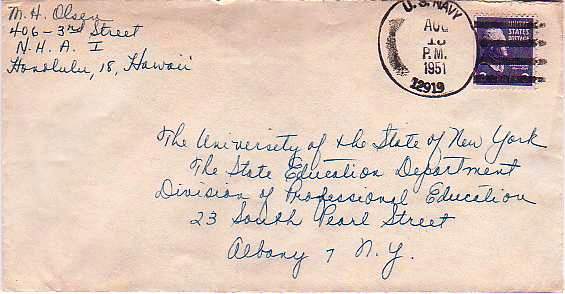 M. H. Olsen
406-3rd Street
N.H.A. I
Honolulu, 18, Hawaii
U.S. NAVY
AUG
18
P.M.
1951
12919
UNITED
STATES
POSTAGE
The University of the State of New York
The State Education Department
Division of Professional Education
23 South Pearl Street
Albany 7 N.Y.